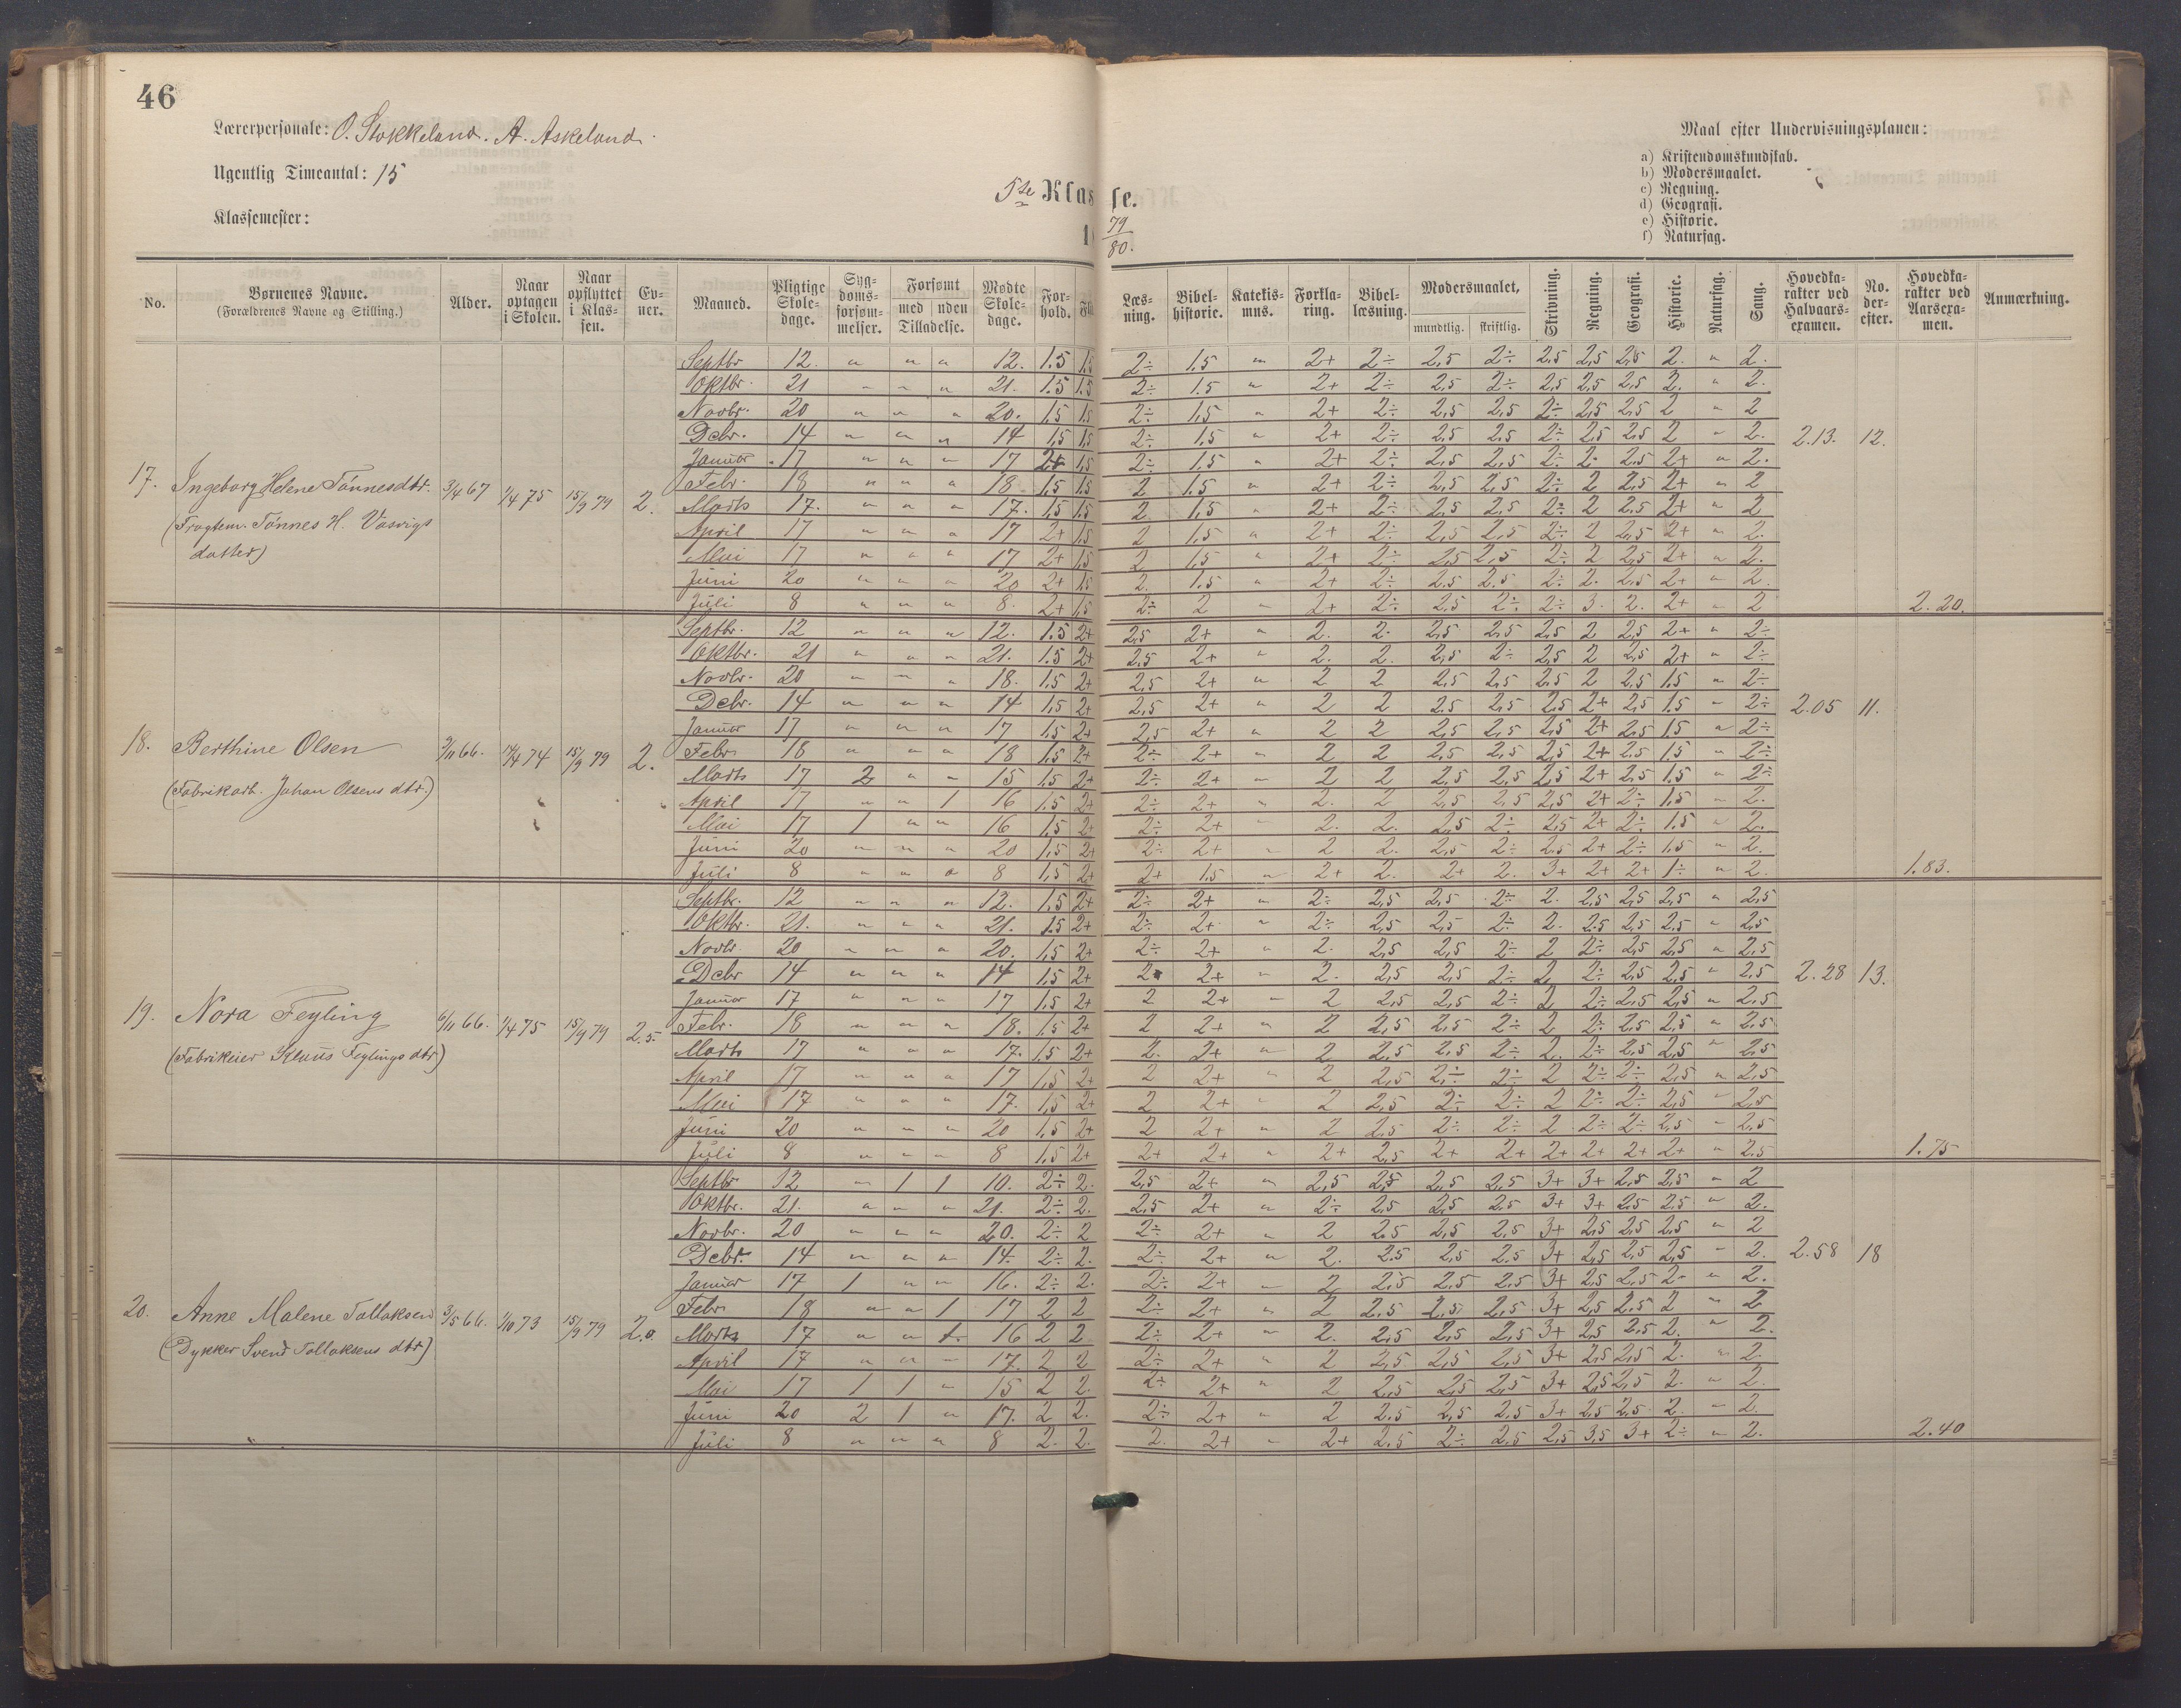 46
Lærerpersonale: O. Stokkeland. A. Askeland.
Ugentlig Timeantal: 15
Klassemester:
5te Klasse.
79/80.
Maal efter Undervisningsplanen:
a) Kristendomskundskab.
b) Modersmaalet.
c) Regning.
d) Geografi.
e) Historie.
f) Naturfag.
No. Børnenes Navne. (Forældrenes Navne og Stilling.) Alder. Naar optagen i Skolen. Naar opflyttet i Klassen. Evner. Maaned. Pligtige Skoledage. Sygdomsforsømmelser. Forsømt med uden Tilladelse. Mødte Skoledage. Forhold. Læsning. Bibelhistorie. Katekismus. Forklaring. Bibellæsning. Modersmaalet, mundtlig. skriftlig. Skrivning. Regning. Geografi. Historie. Naturfag. Sang. Hovedkarakter ved Halvaarsexamen. No. derefter. Hovedkarakter ved Aarsexamen. Anmærkning.
17. Ingeborg Helene Tönnesdtr. 3/4 67 1/4 75 15/9 79 2.
(Fragtem. Tönnes H. Vasvigs
datter)
Septbr 12. " " " 12. 1.5 1.5 2÷ 1.5 " 2+ 2÷ 2,5 2÷ 2.5 2,5 2,5 2. " 2.
Oktbr. 21 " " " 21. 1.5 1.5 2÷ 1.5 " 2+ 2÷ 2,5 2÷ 2,5 2,5 2,5 2. " 2.
Novbr. 20 " " " 20. 1,5 1,5 2÷ 1,5 " 2+ 2÷ 2,5 2,5 2÷ 2,5 2,5 2 " 2
Debr. 14 " " " 14 1,5 1,5 2÷ 1,5 " 2+ 2÷ 2,5 2.5 2÷ 2,5 2,5 2 " 2. 2.13. 12.
Januar 17 " " " 17 2+ 1,5 2÷ 1.5 " 2+ 2÷ 2,5 2,5 2÷ 2. 2,5 2+ " 2.
Febr. 18 " " " 18 1,5 1.5 2 1.5 " 2+ 2÷ 2,5 2,5 2÷ 2 2,5 2+ " 2
Marts 17. " " " 17. 1,5 1.5 2 1,5 " 2+ 2÷ 2,5 2,5 2÷ 2 2,5 2+ " 2
April 17 " " " 17 2+ 1,5 2 1,5 " 2+ 2÷ 2,5 2,5 2÷ 2 2,5 2+ " 2.
Mai 17 " " " 17 2+ 1,5 2 1,5 " 2+ 2÷ 2,5 2,5 2÷ 2 2,5 2+ " 2.
Juni 20 " " " 20 2+ 1,5 2. 1.5 " 2+ 2÷ 2.5 2.5 2÷ 2. 2,5 2+ " 2.
Juli 8 " " " 8. 2+ 1,5 2÷ 2 " 2+ 2÷ 2,5 2÷ 2÷ 3. 2. 2+ " 2 2.20.
18. Berthine Olsen 9/11 66. 15/9 79 2.
(Fabrikarb. Johan Olsens dtr.)
Septbr. 12 " " " 12. 1.5 2+ 2,5 2+ " 2. 2. 2,5 2,5 2,5 2 2,5 2+ " 2÷
Oktbr. 21 " " " 21. 1.5 2+ 2.5 2+ " 2. 2. 2,5 2÷ 2,5 2 2,5 2+ " 2÷
Novbr. 20 " " " 18. 1,5 2+ 2,5 2+ " 2 2 2,5 2,5 2.5 2 2,5 1,5 " 2÷
Debr. 14 " " " 14 1,5 2+ 2,5 2+ " 2 2 2,5 2,5 2,5 2+ 2,5 1.5 " 2÷ 2.05 11.
Januar 17 " " " 17 1,5 2+ 2,5 2+ " 2 2 2,5 2,5 2,5 2+ 2,5 1,5 " 2÷
Febr 18 " " " 18 1,5 2+ 2÷ 2+ " 2 2 2,5 2,5 2,5 2+ 2,5 1.5 " 2÷
Marts 17 2 " " 15 1.5 2+ 2÷ 2+ " 2 2 2,5 2,5 2,5 2+ 2,5 1,5 " 2÷
April 17 " " 1 16 1.5 2+ 2÷ 2+ " 2. 2 2,5 2,5 2,5 2+ 2÷ 1.5 " 2.
Mai 17 1 " " 16 1,5 2+ 2÷ 2+ " 2. 2. 2,5 2÷ 2,5 2+ 2÷ 1.5 " 2.
Juni 20 " " " 20 1,5 2+ 2÷ 2+ " 2 2. 2,5 2÷ 2,5 2+ 2÷ 1,5 " 2.
Juli 8 " " " 8 1,5 2+ 2+ 1.5 " 2+ 2. 2+ 2. 3+ 2+ 2+ 1÷ " 2. 1.83.
19. Nora Feyling 6/11 66. 1/4 75 15/9 79 2.5.
(Fabrikeier Klaus Feylings dtr)
Septbr. 12 " " " 12. 1.5 2+ 2÷ 2+ " 2÷ 2,5 2,5 2÷ 2. 2,5 2,5 2,5 " 2,5
Oktbr. 21. " " " 21. 1.5 2+ 2÷ 2+ " 2÷ 2,5 2,5 2÷ 2. 2.5 2,5 2,5 " 2,5
Novbr. 20 " " " 20. 1,5 2+ 2÷ 2+ " 2. 2,5 2,5 2÷ 2 2÷ 2,5 2,5 " 2,5
Debr 14 " " " 14 1,5 2+ 2 2+ " 2. 2,5 2,5 2÷ 2 2÷ 2,5 2,5 " 2,5 2.28 13.
Januar 17 " " " 17 1,5 2+ 2 2+ " 2 2,5 2,5 2÷ 2 2÷ 2,5 2,5 " 2,5
Febr. 18 " " " 18. 1,5 2+ 2 2+ " 2 2,5 2,5 2÷ 2 2÷ 2,5 2,5 " 2,5
Marts 17 " " " 17. 1.5 2+ 2. 2+ " 2 2,5 2,5 2÷ 2. 2÷ 2,5 2,5 " 2,5
April 17 " " " 17 1,5 2+ 2 2+ " 2 2,5 2÷ 2÷ 2 2÷ 2÷ 2,5 " 2,5
Mai 17 " " " 17. 1,5 2+ 2 2+ " 2 2,5 2÷ 2÷ 2 2÷ 2÷ 2,5 " 2,5
Juni 20 " " " 20 1,5 2+ 2 2+ " 2 2,5 2÷ 2÷ 2 2÷ 2÷ 2,5 " 2,5
Juli 8 " " " 8 1.5 2+ 2+ 2+ " 2+ 2,5 2+ 2+ 2+ 2+ 2+ 2+ " 2.5 1.75
20. Anne Malene Tollaksen 3/5 66. 1/10 73 15/9 79 2.0.
(Dykker Svend Tollaksens dtr)
Septbr 12 " 1 1 10. 2÷ 2. 2,5 2+ " 2,5 2,5 2,5 2,5 3+ 3+ 2,5 2,5 " 2
Oktbr. 21. " " " 21. 2÷ 2. 2,5 2+ " 2÷ 2,5 2,5 2,5 3+ 3+ 2,5 2,5 " 2.
Novbr. 20 " " " 20. 2÷ 2 2÷ 2+ " 2 2,5 2,5 2,5 3+ 2,5 2,5 2,5 " 2
Debr. 14 " " " 14. 2÷ 2. 2÷ 2+ " 2. 2.5 2,5 2,5 3+ 2,5 2,5 2,5 " 2. 2.58 18
Januar 17 1 " " 16. 2÷ 2. 2÷ 2+ " 2 2,5 2,5 2,5 3+ 2,5 2,5 2 " 2.
Febr 18 " " 1 17 2 2 2÷ 2+ " 2 2.5 2,5 2,5 3+ 2,5 2,5 2 " 2
Marts 17 " " 1. 16 2 2 2÷ 2+ " 2. 2,5 2,5 2,5 3+ 2,5 2,5 2. " 2.
April 17 " " " 17. 2 2 2÷ 2+ " 2 2,5 2,5 2,5 3+ 2,5 2,5 2. " 2.
Mai 17 1 1 " 15 2 2. 2÷ 2+ " 2 2,5 2,5 2,5 3+ 2,5 2,5 2. " 2.
Juni 20 2 1 " 17. 2 2. 2÷ 2+ " 2 2.5 2,5 2,5 3+ 2,5 2,5 2. " 2.
Juli 8 " " " 8 2. 2. 2. 2+ " 2+ 2.5 2÷ 2,5 2,5 3,5 3+ 2÷ " 2. 2.40